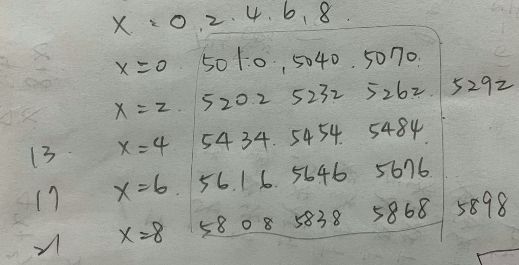 X = 0, 2, 4, 6, 8.
X=0 5010, 5040. 5070.
X=2. 5202 5232 5262. 5292
13. X=4 5434. 5454. 5484.
17 X=6. 5616. 5646 5676
21 X=8 5808 5838 5868 5898